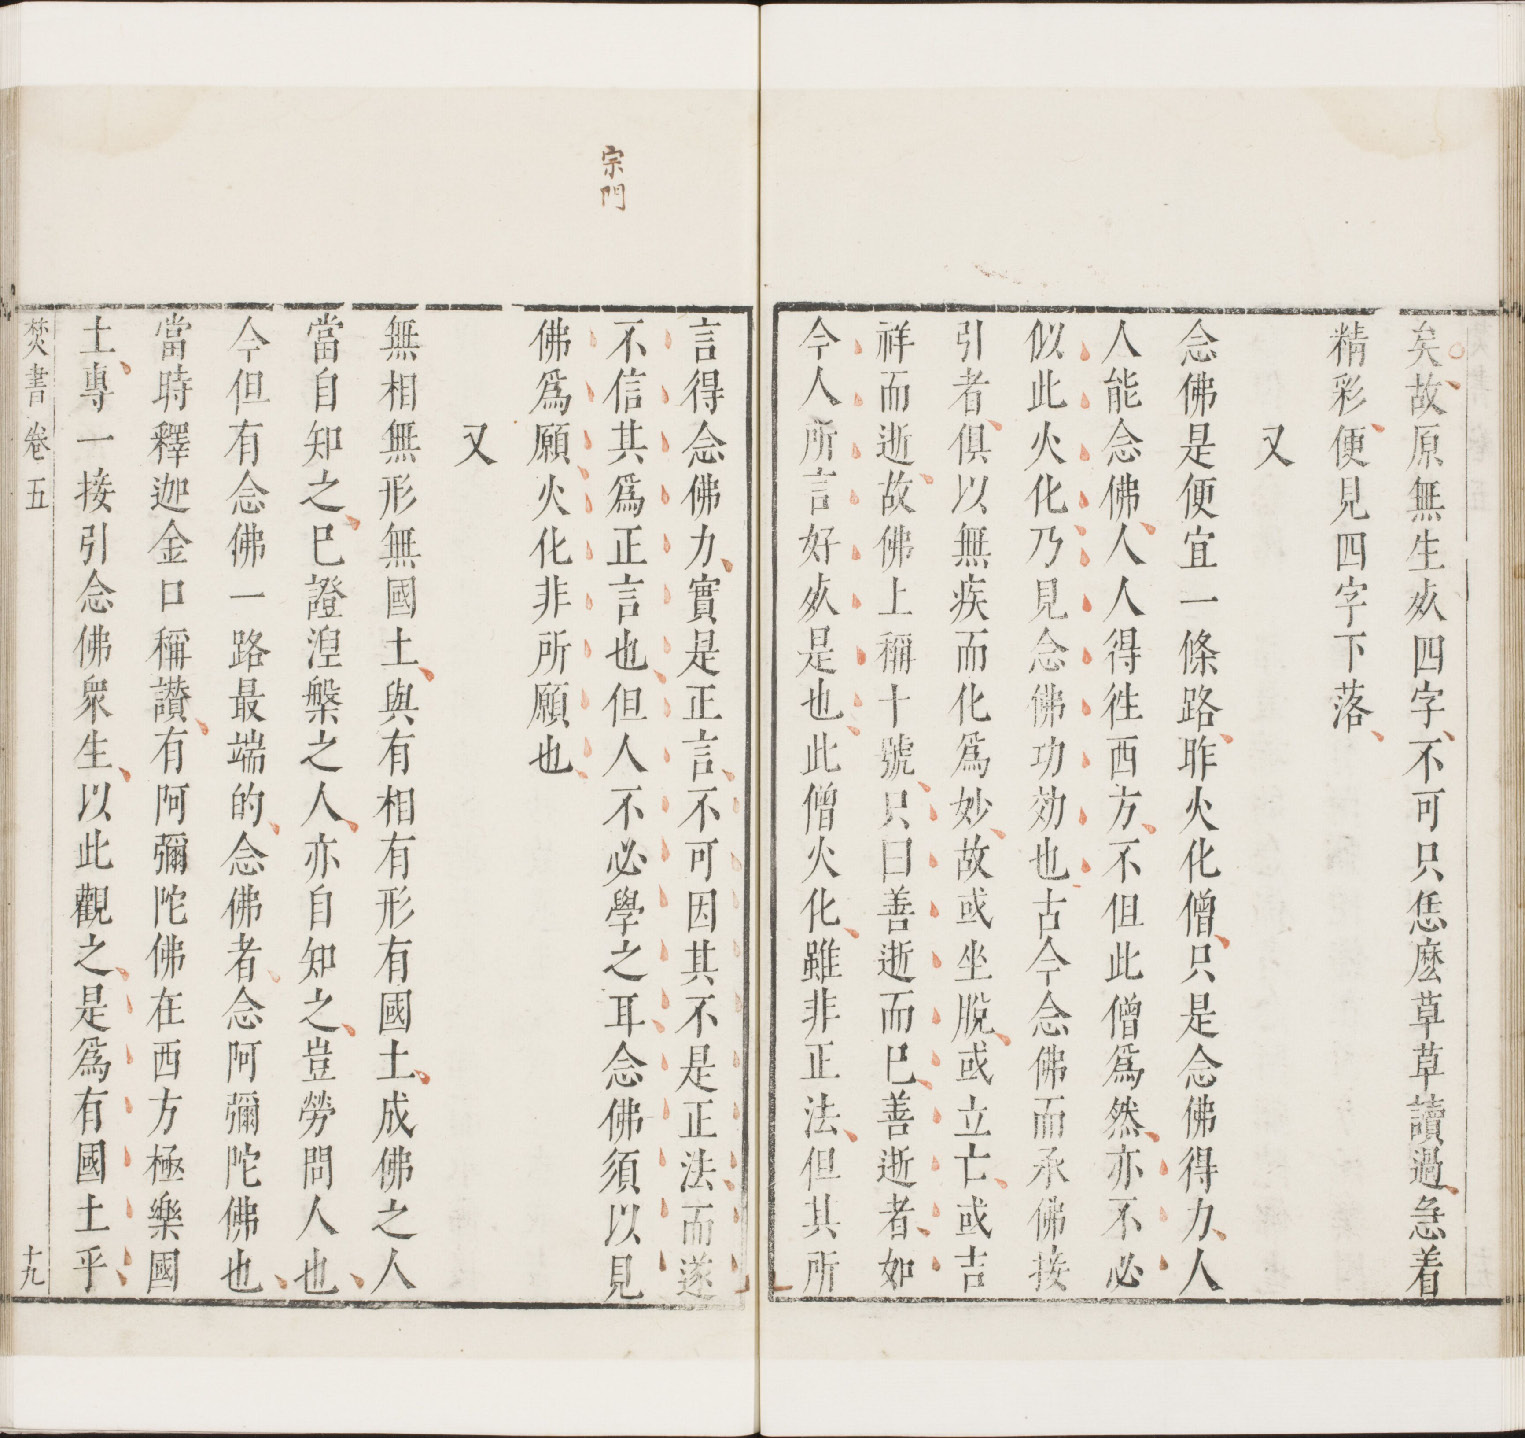 矣故原無生死四字不可只恁麽草草讀過急着
精彩便見四字下落
又
念佛是便宜一條路昨火化僧只是念佛得力人
人能念佛人人得徃西方不但此僧爲然亦不必
似此火化乃見念佛功効也古今念佛而承佛接
引者俱以無疾而化爲妙故或坐脫或立亡或吉
祥而逝故佛上稱十號只曰善逝而已善逝者如
今人所言好死是也此僧火化雖非正法但其所
宗門
言得念佛力實是正言不可因其不是正法而遂
不信其爲正言也但人不必學之耳念佛須以見
佛爲願火化非所願也
又
無相無形無國土與有相有形有國土成佛之人
當自知之已證涅槃之人亦自知之豈勞問人也
今但有念佛一路最端的念佛者念阿彌陀佛也
當時釋迦金口稱讚有阿彌陀佛在西方極樂國
土專一接引念佛衆生以此觀之是爲有國土乎
焚書卷五
十九